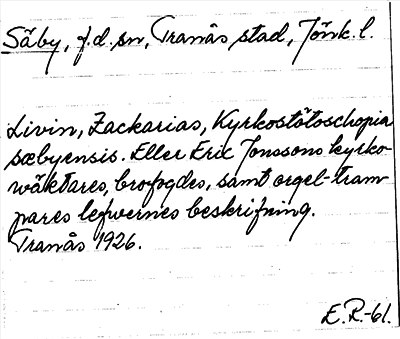 Säby, f.d. sn, Tranås stad, Jönk. l.
Livin, Zackarias, Kyrkostötoschopia
sæbyensis. Eller Eric Jonssons kyrko-
wäktares, brofogdes, samt orgel-tram-
pares lefwernes beskrifning.
Tranås 1926.
E.R.-61.